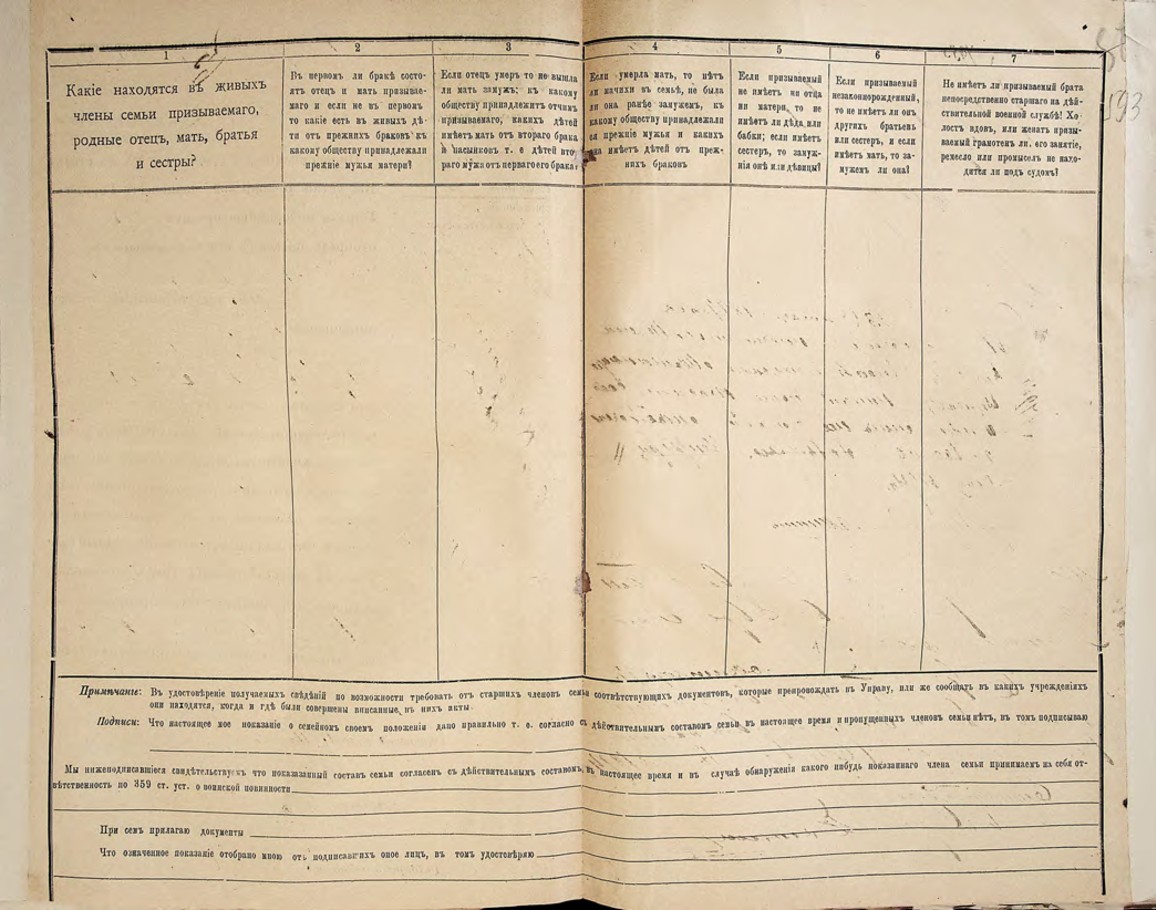 1
Какіе находятся въ живыхъ
члены семьи призываемаго,
родные отецъ, мать, братья
и сестры?
2
Въ первомъ ли бракѣ состо-
ятъ отецъ и мать призывае-
маго и если не въ первомъ
то какіе есть въ живыхъ дѣ-
ти отъ прежнихъ браковъ къ
какому обществу принадлежали
прежніе мужья матери?
3
Если отецъ умеръ то не вышла
ли мать замужъ; къ какому
обществу принадлежитъ отчимъ
призываемаго, какихъ дѣтей
имѣетъ мать отъ втораго брака
и пасынковъ т. е дѣтей вто-
раго мужа отъ перваго его брака?
4
Если умерла мать, то нѣтъ
ли мачихи въ семьѣ, не была
ли она ранѣе замужемъ, къ
какому обществу принадлежали
ея прежніе мужья и какихъ
она имѣетъ дѣтей отъ преж-
нихъ браковъ
5
Если призываемый
не имѣетъ ни отца
ни матери, то не
имѣетъ ли дѣда или
бабки; если имѣетъ
сестеръ, то замуж-
нія онѣ или дѣвицы?
6
Если призываемый
незаконнорожденный,
то не имѣетъ ли онъ
другихъ братьевъ
или сестеръ, и если
имѣетъ мать, то за-
мужемъ ли она?
7
Не имѣетъ ли призываемый брата
непосредственно старшаго на дѣй-
ствительной военной службѣ! Хо-
лостъ вдовъ, или женатъ призы-
ваемый грамотенъ ли. его занятіе,
ремесло или промыселъ не нахо-
дится ли подъ судомъ?
193
Примѣчаніе: Въ удостовѣреніе получаемыхъ свѣдѣній по возможности требовать отъ старшихъ членовъ семьи соотвѣтствующихъ документовъ, которые препровождать въ Управу, или же сообщать въ какихъ учрежденіяхъ
они находятся, когда и гдѣ были совершены вписанные въ нихъ акты.
Подписи: Что настоящее мое показаніе о семейномъ своемъ положеніи дано правильно т. е. согласно съ дѣйствительнымъ составомъ семьи въ настоящее время и пропущенныхъ членовъ семьи нѣтъ, въ томъ подписываю
Мы нижеподписавшіеся свидѣтельствуемъ что показазанный составъ семьи согласенъ съ дѣйствительнымъ составомъ, въ настоящее время и въ случаѣ обнаруженія какого нибудь показаннаго члена семьи принимаемъ на себя от-
вѣтственность по 359 ст. уст. о воинской повинности
При семъ прилагаю документы
Что означенное показаніе отобрано мною отъ подписавшихъ оное лицъ, въ томъ удостовѣряю